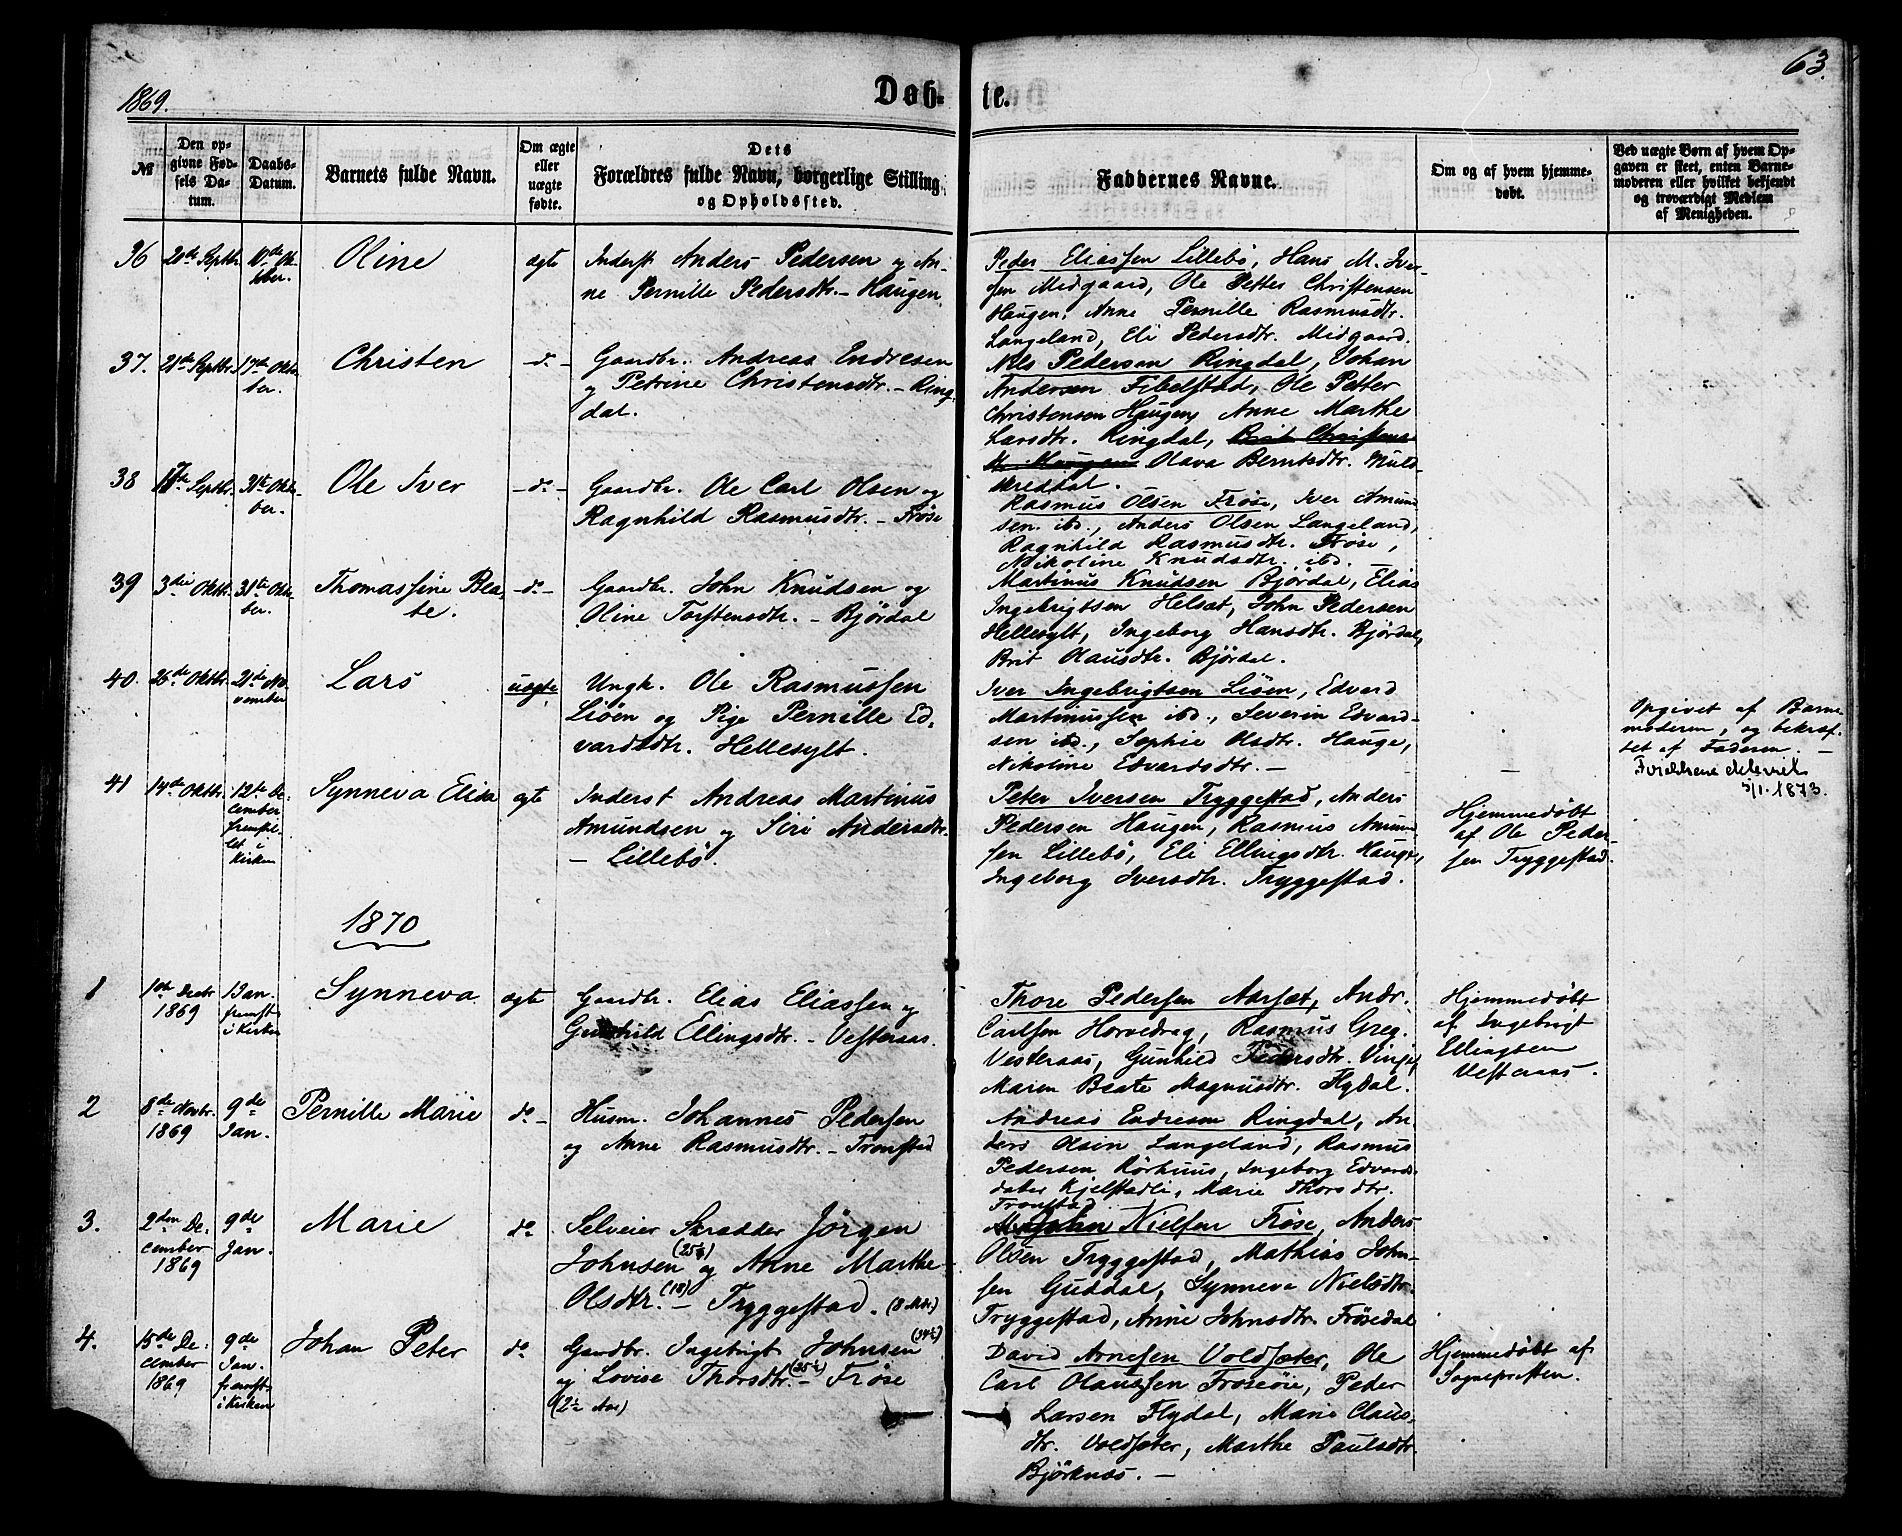 1869.
Døb-
te.
63.
№
Den op-
givne Fød-
sels Da-
tum.
Daabs-
Datum.
Barnets fulde Navn.
Om ægte
eller
uægte
fødte.
Dets
Forældres fulde Navn, borgerlige Stilling
og Opholdssted.
Faddernes Navne.
Om og af hvem hjemme-
døbt.
Ved uægte Børn af hvem Op-
gaven er skeet, enten Barne-
moderen eller hvilket bekjendt
og troværdigt Medlem
af Menigheden.
36
20de Septbr.
10de Ok-
tober.
Oline
ægte
Inderst Anders Pedersen og An-
ne Pernille Pedersdtr. - Haugen
Peder Eliassen Lillebø, Hans M. Iver-
sen Midgaard, Ole Petter Christensen
Haugen, Anne Pernille Rasmusdtr.
Langeland, Eli Pedersdtr. Midgaard.
37.
21de Septbr.
17de Okto-
ber.
Christen
- do -
Gaardbr. Andreas Endresen
og Petrine Christensdtr. - Ring-
dal.
Nils Pedersen Ringdal, Johan
Andersen Fibelstad, Ole Petter
Christensen Haugen, Anne Marthe
Larsdtr. Ringdal, Brit Christens-
dtr. Haugen Olava Berntsdtr. Muld-
skreddal.
38
Septbr.
31te Okto-
ber.
Ole Iver
- do -
Gaardbr. Ole Carl Olsen og
Ragnhild Rasmusdtr. - Frøse
Rasmus Olsen Frøse, Iver Amund-
sen ibd., Anders Olsen Langeland,
Ragnhild Rasmusdtr. Frøse,
Nikoline Knudsdtr. ibd. -
39
3die Oktbr.
31te Okto-
ber.
Thomassine Bea-
te.
- do -
Gaardbr. John Knudsen og
Oline Torstensdtr. - Bjørdal
Martinus Knudsen Bjørdal, Elias
Ingebrigtsen Helsæt, John Pedersen
Hellesylt, Ingeborg Hansdtr. Bjørdal,
Brit Olausdtr. Bjørdal.
40.
26de Oktbr.
21de No-
vember
Lars
uægte
Ungk. Ole Rasmussen
Liøen og Pige Pernille Ed-
vardsdtr. Hellesylt.
Iver Ingebrigtsen Liøen, Edvard
Martinussen ibd., Severin Edvard-
sen ibd., Sophie Olsdtr. Hauge,
Nikoline Edvardsdtr. -
-
Opgivet af Barne-
moderen, og bekræf-
tet af Faderen. -
5/1. 1873.
41
14de Oktbr.
12te De-
cember
fremstil-
let i
Kirken
Synneva Elisa
ægte
Inderst Andreas Martinus
Amundsen og Siri Andersdtr.
- Lillebø.
Peter Iversen Tryggestad, Anders
Pedersen Haugen, Rasmus Amund-
sen Lillebø, Eli Ellingsdtr. Hauge,
Ingeborg Iversdtr. Tryggestad.
Hjemmedøbt
af Ole Peder-
sen Tryggestad.
1870
1
1ste Decbr
1869
1 Jan.
fremst.
i Kirken
Synneva
ægte
Gaardbr. Elias Eliassen og
Gunhild Ellingsdtr. - Vesteraas.
Thore Pedersen Aarsæt, Andr.
Carlsen Horvedrag, Rasmus Greg.
Vesteraas, Gunhild Pedersdtr. Vinje,
Maren Beate Magnusdtr. Flydal.
Hjemmedøbt
af Ingebrigt
Ellingsen
Vesteraas.
2
8de Novbr.
1869
9de
Jan.
Pernille Marie
do -
Husm. Johannes Pedersen
og Anne Rasmusdtr. - Tronstad
Andreas Endresen Ringdal, An-
ders Olsen Langeland, Rasmus
Pedersen Rørhuus, Ingeborg Edvards-
datter Kjelstadli, Marie Thorsdtr.
Tronstad
3.
2den De-
cember
1869
9de
Jan.
Marie
do
Selveier Skrædder Jørgen
Johnsen (25½) og Anne Marthe
Olsdtr. (18) - Tryggestad. (8 Mdr.)
John Nielsen Frøse, Anders
Olsen Tryggestad, Mathias John-
sen Guddal, Synneva Nielsdtr.
Tryggestad, Anne Johnsdtr. Frøsedal
4.
15de De-
cember
1869
9de
Jan.
fremst.
i Kirken
Johan Peter
do
Gaardbr. Ingebrigt Johnsen (34½)
og Lovise Thorsdtr. (35½) - Frøse
(2½ Aar)
David Arnesen Voldsæter, Ole
Carl Olaussen Frøseøie, Peder
Larsen Flydal, Marie Claus-
dtr. Voldsæter, Marthe Paulsdtr.
Bjørknæs. -
Hjemmedøbt af
Sognepresten.